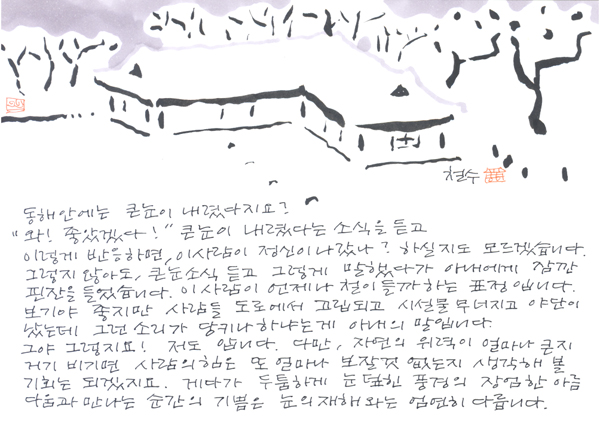 철수
동해안에는 큰눈이 내렸다지요?
"와! 좋았겠다!" 큰눈이 내렸다는 소식을 듣고
이렇게 반응하면, 이사람이 정신이나갔나? 하실지도 모르겠습니다.
그렇지 않아도, 큰눈소식 듣고 그렇게 말했다가 아내에게 잠깐
핀잔을 들었습니다. 이사람이 언제나 철이들까하는 표정입니다.
보기야 좋지만 사람들 도로에서 고립되고 시설물 무너지고 야단이
났는데 그런 소리가 당키나하냐는게 아내의 말입니다.
그야 그렇지요! 저도 압니다. 다만, 자연의 위력이 얼마나 큰지
거기 비기면 사람의힘은 또 얼마나 보잘것 없는지 생각해 볼
기회는 되겠지요. 게다가 두툼하게 눈 덮힌 풍경의 장엄한 아름
다움과 만나는 순간의 기쁨은 눈의재해와는 엄연히 다릅니다.